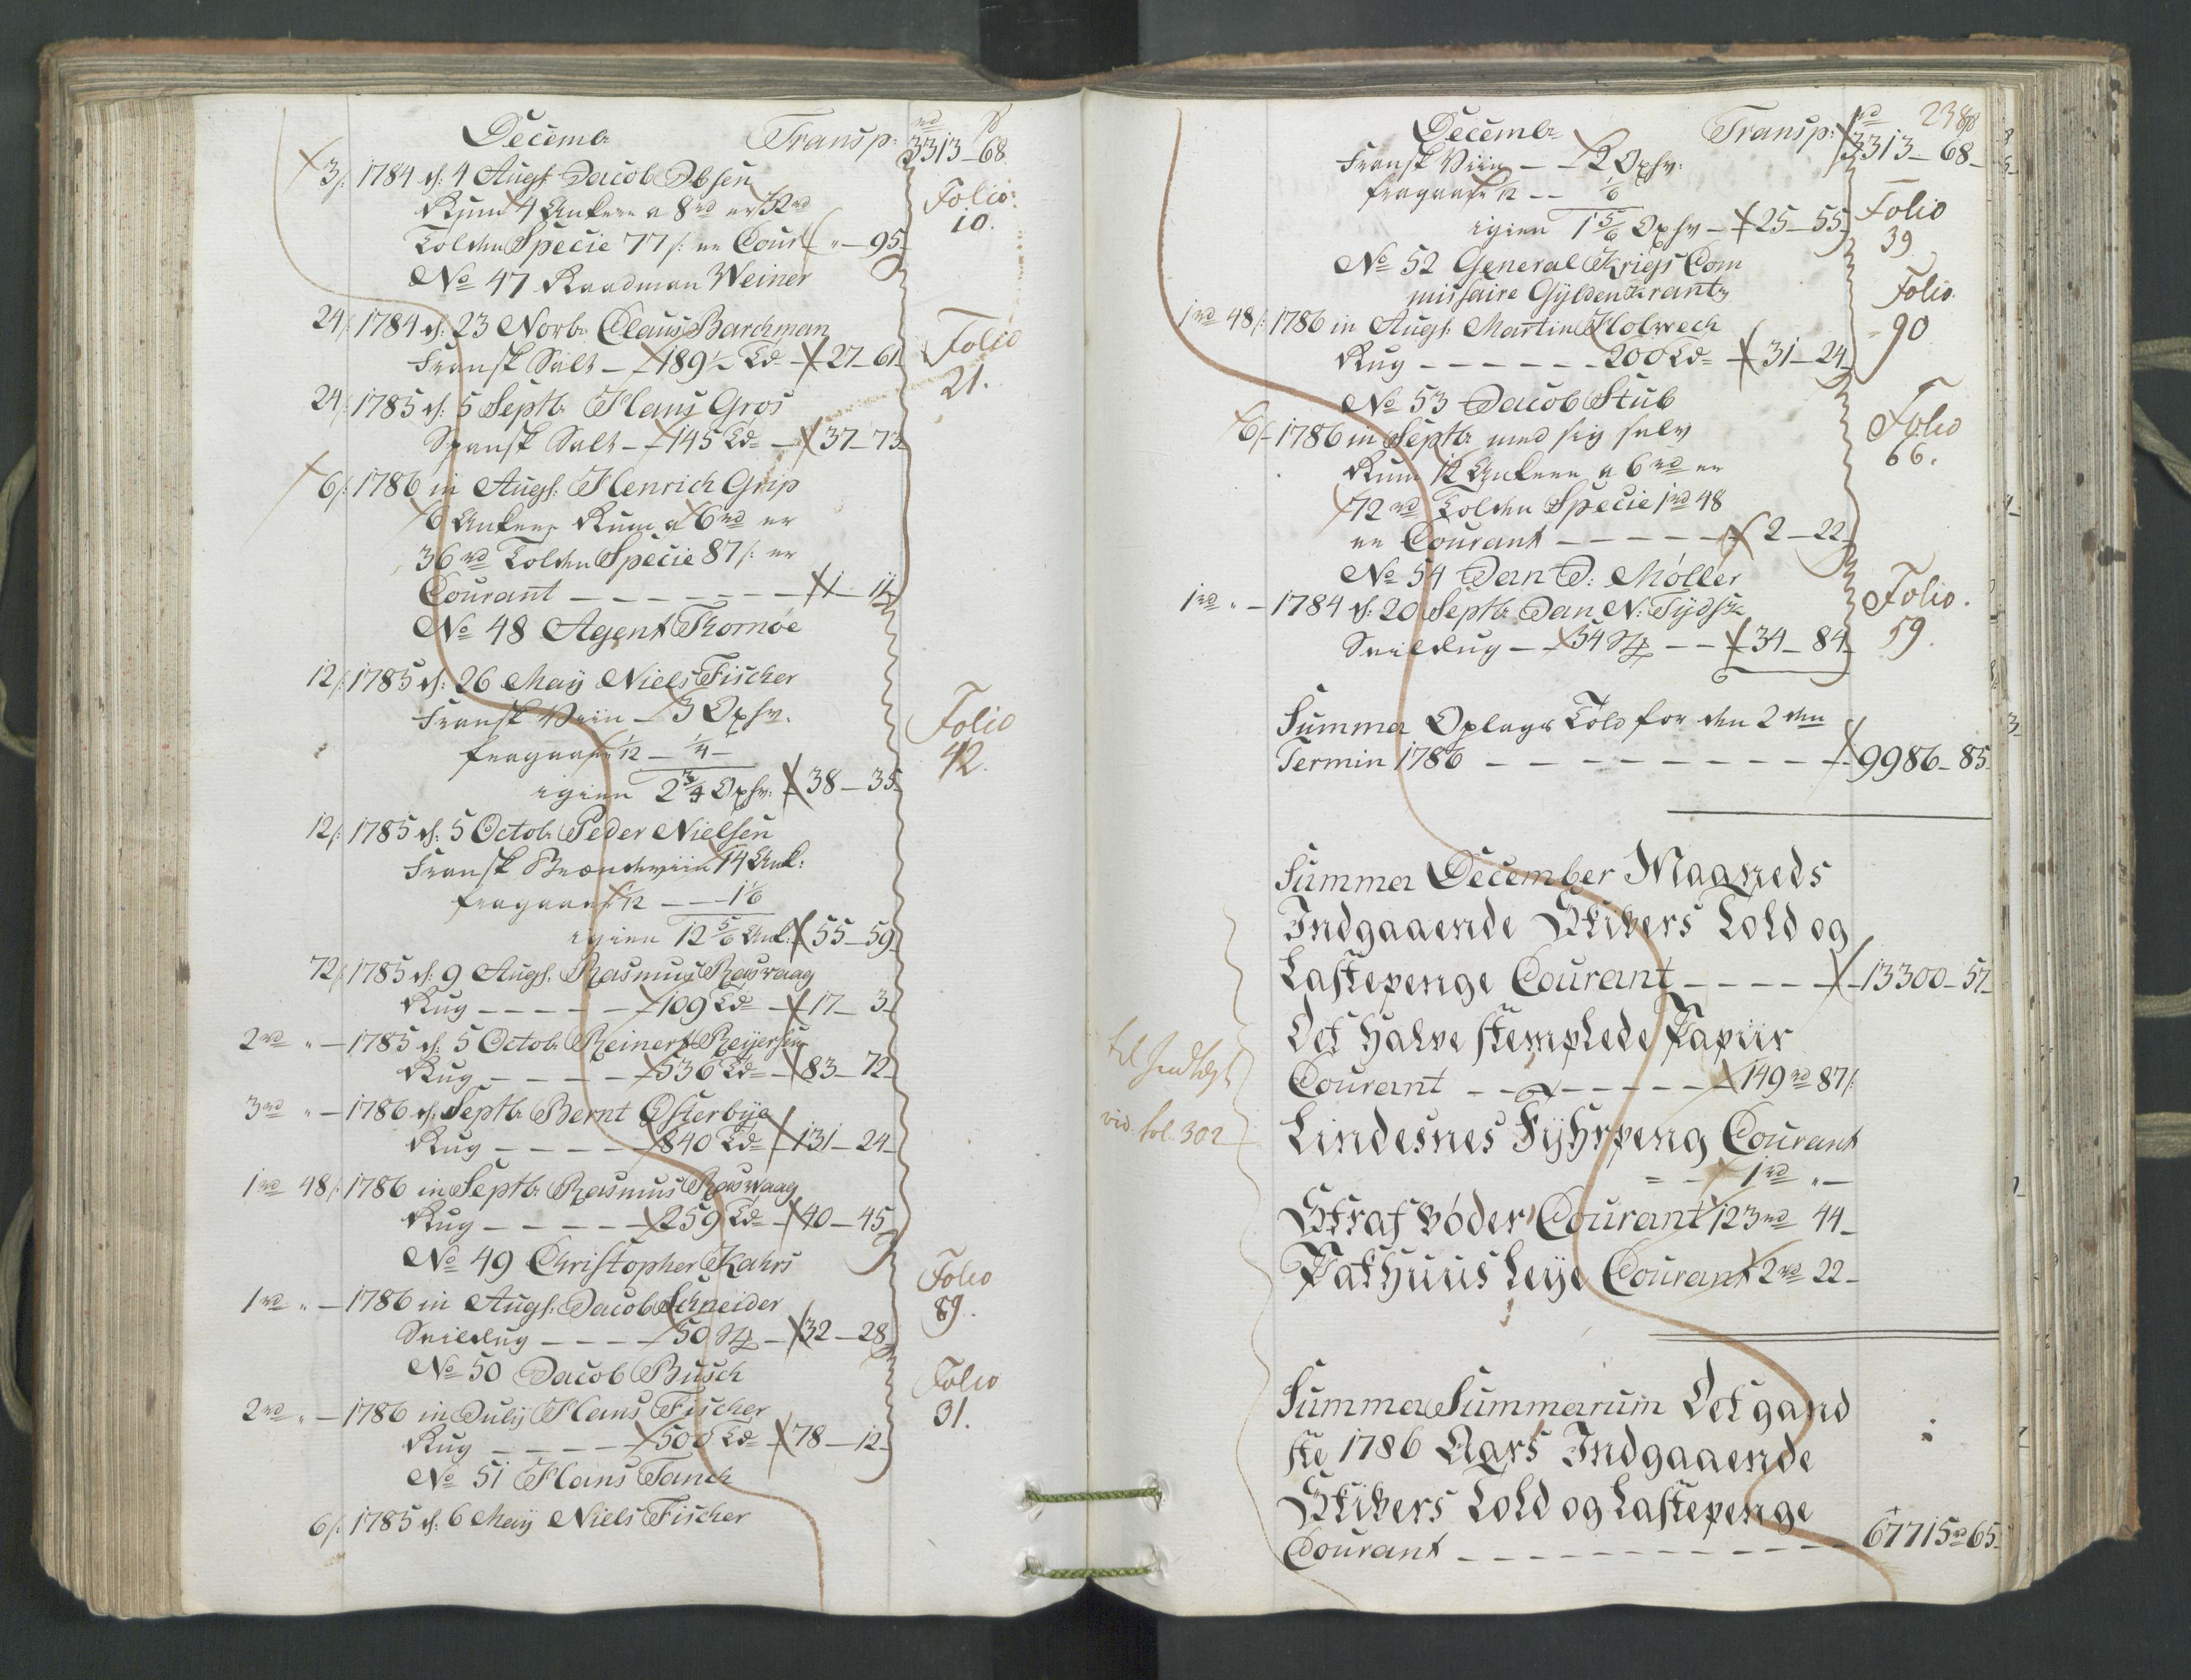 Decembr Transp: rd ß
3313 - 68
3/: 1784 d: 4 Augs: Jacob Ibsen
Rum 4 Ankere a 8rd er 32rd
Folio:
10.
Tolden Specie 77/: er Cour " - 95
No 47 Raadman Weiner
24/: 1784 d: 23 Novbr Claus Barchman
Fransk Salt - 189½ Td - 27 - 61
Folio
21.
24/: 1785 d: 5 Septbr Hans Gros
Spansk Salt - - 145 Td - 37 - 73
6/: 1786 in Augs: Henrich Grip
6 Ankere Rum a 6rd er
36rd Tolden Specie 87/: er
Courant - - - - - - - 1 - 11
No 48 Agent Thornøe
12/: 1785 d: 26 Maij Niels Fischer
Fransk Viin - 3 Oxhv.
fragaar 1/12 - ¼ -
Folio
42.
igien 2¾ Oxhv: 38 - 35
12/: 1785 d: 5 Octobr Peder Nielsen
Fransk Brændeviin 14 Ank:
fragaar 1/12 - - 1 1/6
igien 12 5/6 Ank: 55 - 59
72/: 1785 d: 9 Augs. Rasmus Rasvaag
Rug - - - - - 109 Td - 17 - 3
2rd " - 1785 d: 5 Octobr Reinert Reijersen
Rug - - - - - 536 Td - 83 - 72
3rd " - 1786 d: Septbr Bernt Østerbye
Rug - - - - - 840 Td - 131 - 24
1rd 48/: 1786 in Septbr Rasmus Rasvaag
Rug - - - - - 259 Td - 40 - 45
No 49 Christopher Kahrs
1rd " - 1786 in Augs: Jacob Schneider
Folio
89.
Seildug - - - - 50 St - 32 - 28
No 50 Jacob Busch
2rd " - 1786 in Julij Hans Fischer
Folio
31.
Rug - - - - 500 Td - 78 - 12
No 51 Hans Tanck
6/: 1785 d: 6 Maij Niels Fischer
238
Decembr Transp: rd ß
3313 - 68 -
Fransk Viin - - 2 Oxhv:
fragaar 1/12 - - 1/6
igien 1 5/6 Oxhv - 25 - 55
Folio
39
No 52 General Krigs Com
missaire Gyldenkrantz
1rd 48/: 1786 in Augs: Martin Holwech
Folio
90
Rug - - - - - - 200 Td - 31 - 24
No 53 Jacob Stub
6/- 1786 in Septbr med sig selv
Folio
66.
Rum 12 Ankere a 6rd er
72rd Tolden Specie 1rd 48
er Courant - - - - - 2 - 22
No 54 Jan D: Møller
1rd " - 1784 d: 20 Septbr Jan N: Tijdsk
Folio.
59.
Seildug - - 54 St - - 34 - 84
Summa Oplags Told for den 2den
Termin 1786 - - - - - - - - - 9986 - 85
Summa December Maaneds
Indgaaende Skibers Told og
Lastepenge Courant - - - - - 13300 - 57
Det halve stemplede Papiir
Courant - - - - - - - 149rd 87/:
til Indtægt
vid. fol. 302
Lindesnes Fyhrpeng Courant
= - 1rd " -
Straf bøder Courant 123rd 44 -
Pakhuus Leye Courant 2rd 22 -
Summa Summarum Det gand
ske 1786 Aars Indgaaende
Skibers Told og Lastepenge
Courant - - - - - - - - - - - 67715rd 65